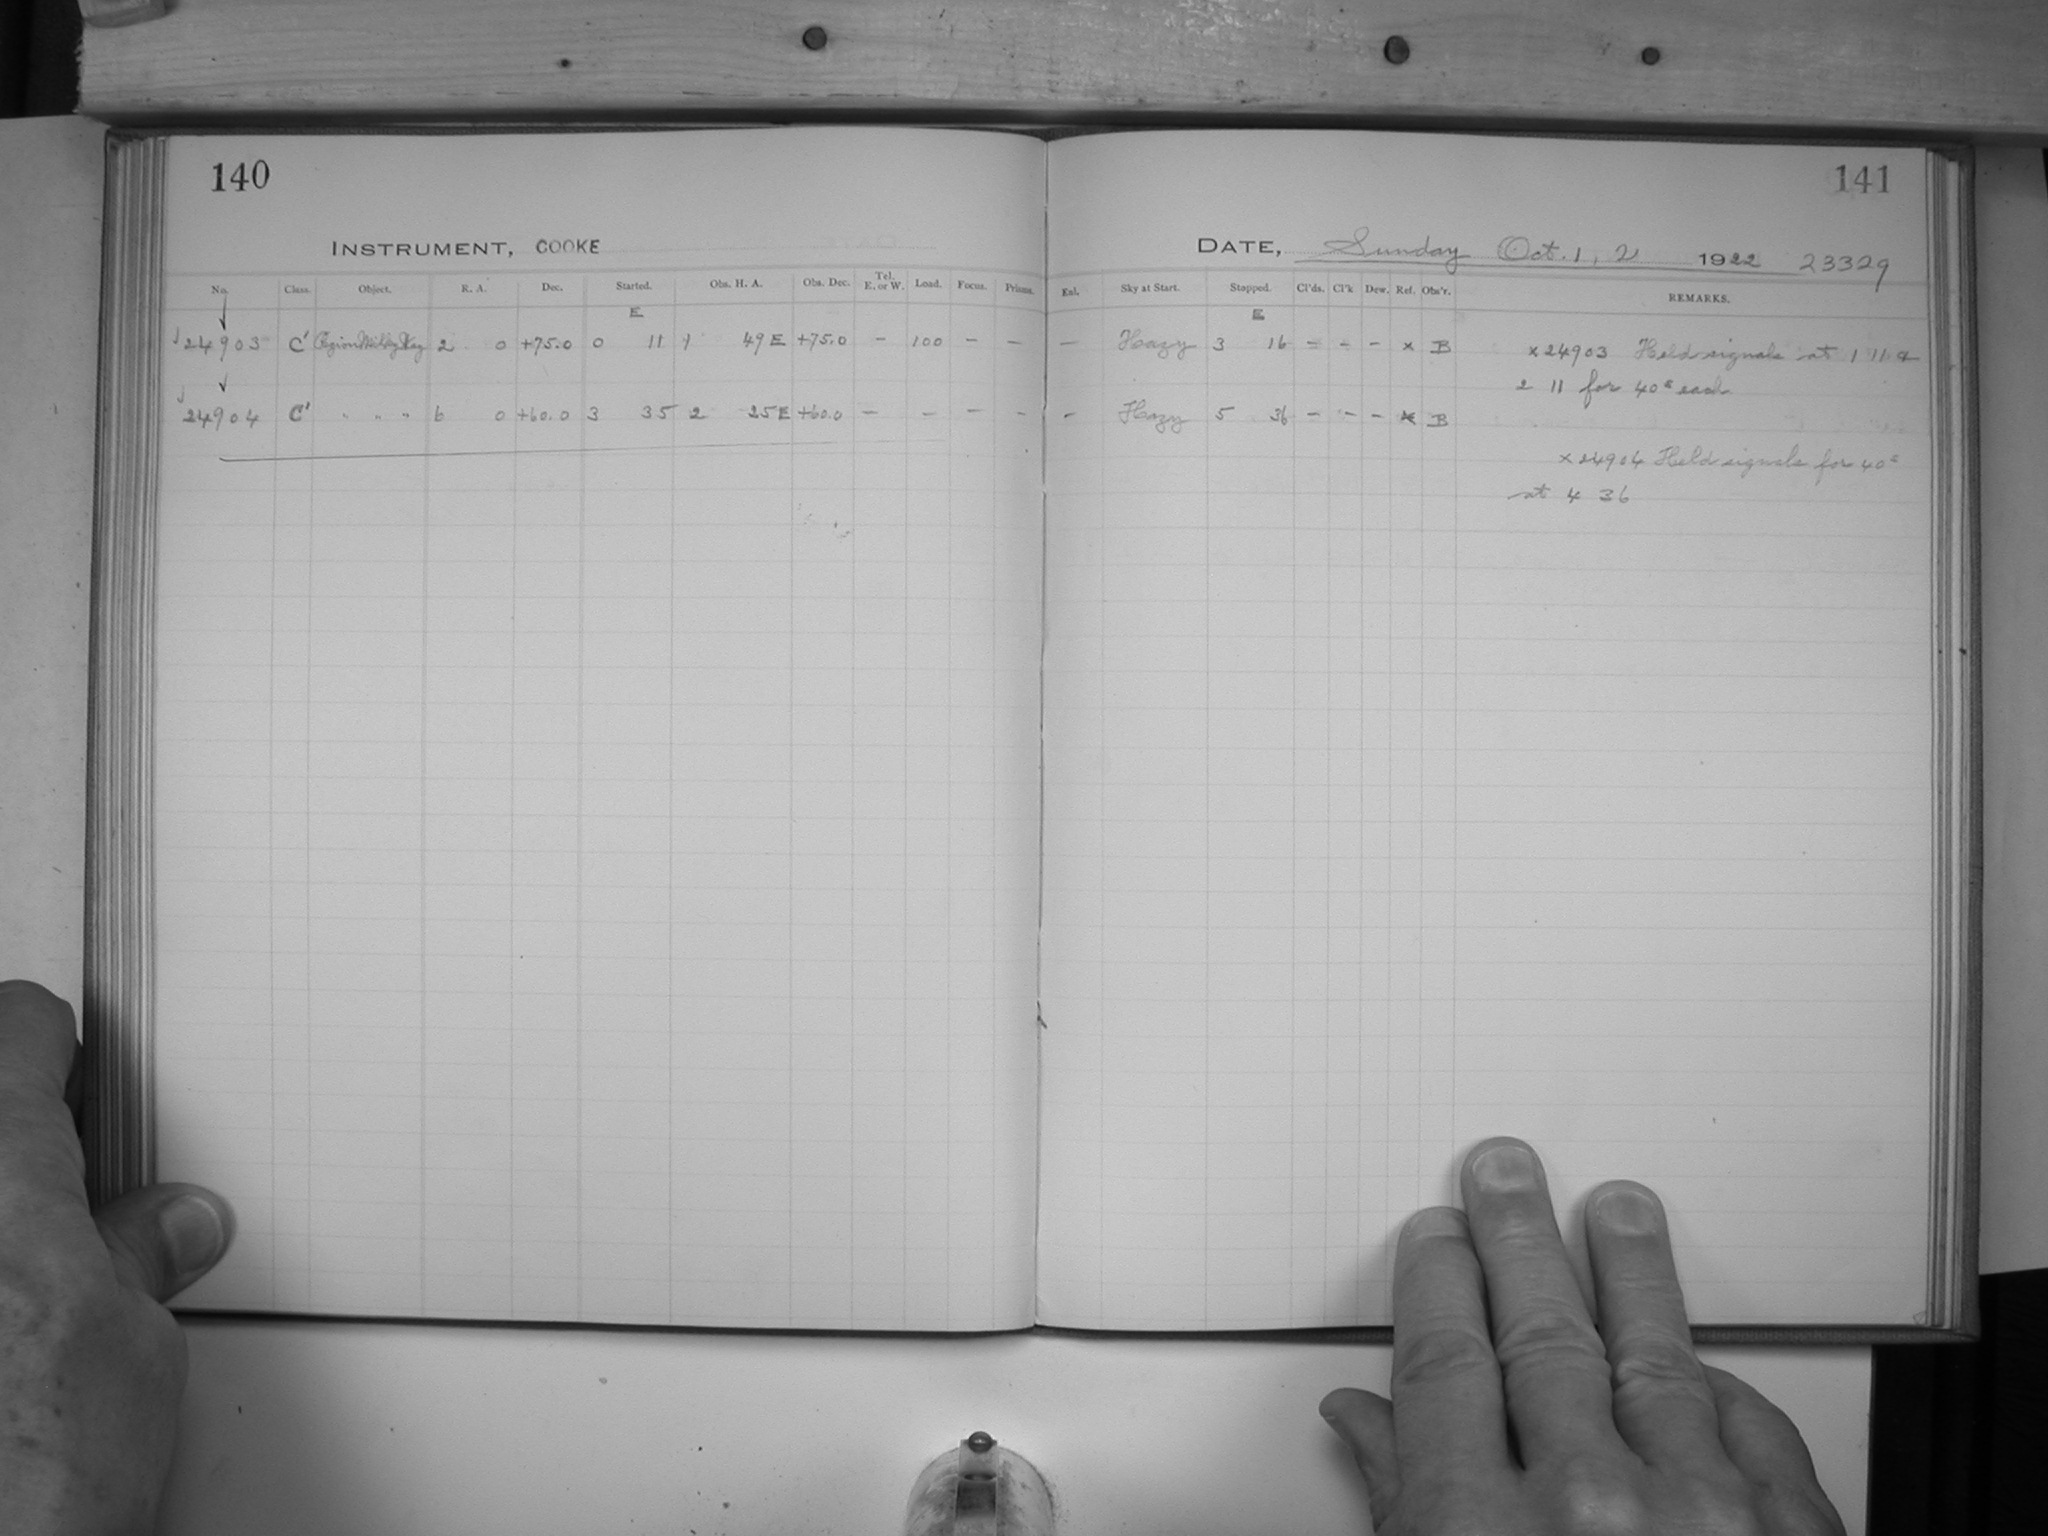 140
INSTRUMENT, COOKE
No. Class. Object. R. A. Dec. Started. Obs. H. A. Obs. Dec. Tel. E. or W. Load. Focus. Prisms.
E
24903 C' Region Milky Way 2 0 +75.0 0 11 1 49 E +75.0 – 100 – –
24904 C' " " " 6 0 +60.0 3 35 2 25 E +60.0 – – – –
141
DATE, Sunday Oct. 1, 2 1922 23329
Exl. Sky at Start. Stopped. Cl'ds. Cl'k Dew. Ref. Obs'r. REMARKS.
E
– Hazy 3 16 – – – x B x24903 Held signals at 1 11 &
2 11 for 40s each
– Hazy 5 36 – – – x B
x24904 Held signals for 40s
at 4 36